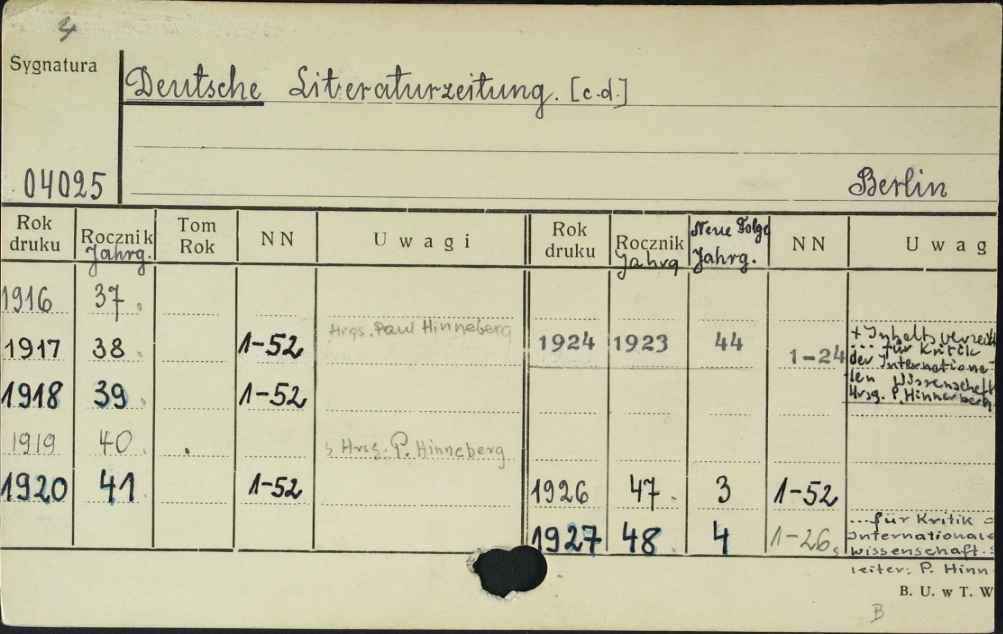 4
Sygnatura
Deutsche Literaturzeitung. [c.d.]
04025
Berlin
Rok druku | Rocznik Jahrg. | Tom Rok | NN | Uwagi | Rok druku | Rocznik Jahrg | Neue Folge Jahrg. | NN | Uwag
1916 37.
1917 38. 1-52 Hrgs. Paul Hinneberg
1918 39. 1-52
1919 40. Hrsg. P. Hinneberg
1920 41. 1-52
1924 1923 44 1-24
+ Inhaltsverzei
... für Kritik
der Internationa-
len Wissenschaft
Hrsg. P. Hinneberg
1926 47. 3 1-52
1927 48. 4 1-26
...für Kritik
Internationale
Wissenschaft.
Leiter: P. Hinn
B. U. w T. W
B